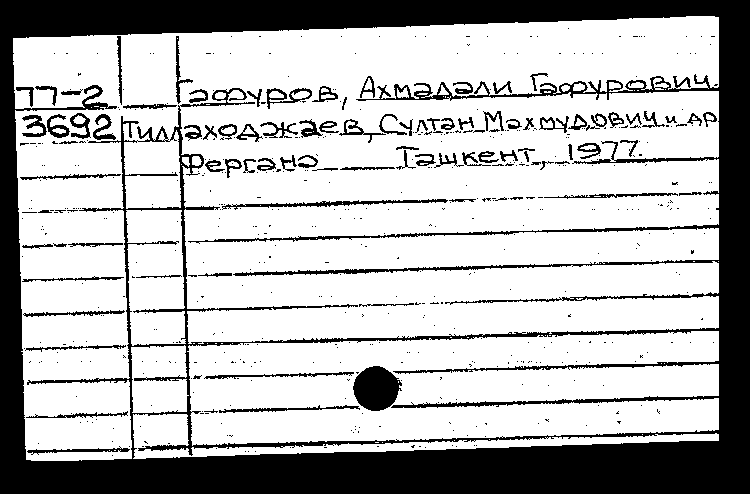 77-2 Гафуров, Ахмадали Гафурович.
3692 Тиллаходжаев, Султан Махмудович и др
Фергана Ташкент, 1977.